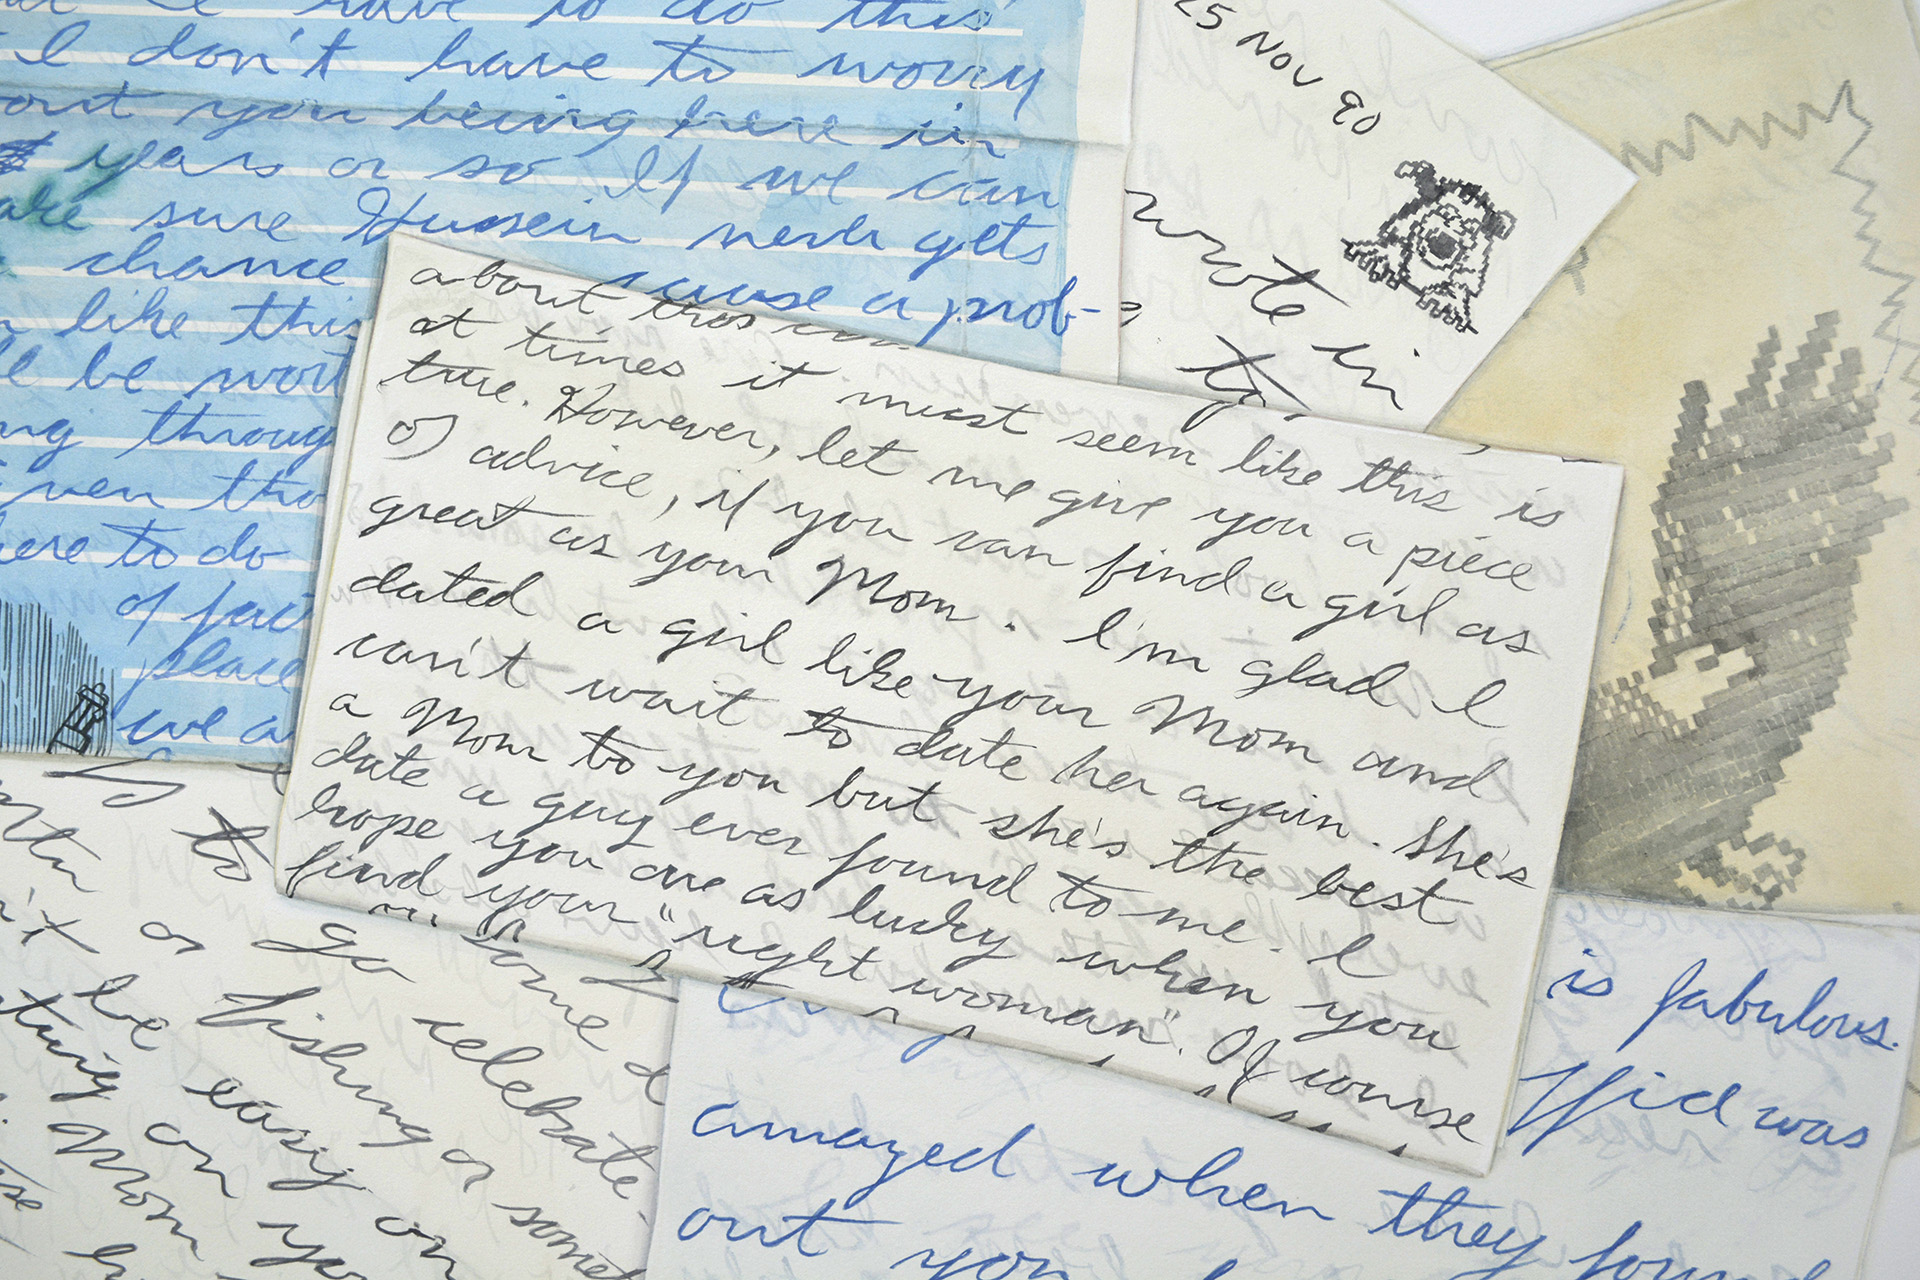 I have to do this
I don't have to worry
out you being here in
years or so If we can
sure Hussein never gets
chance cause a prob-
like this
be
throug
even tho
here to do
of fact
place
we a
25 NOV 90
wrote in
to
about this
at times it must seem like this is
true. However, let me give you a piece
of advice, if you can find a girl as
great as your Mom. I'm glad I
dated a girl like your Mom and
can't wait to date her again. She's
a Mom to you but she's the best
date a guy ever found to me. I
hope you are as lucky when you
find your "right woman". Of course
to
or go celebrate.
fishing or somet
be easy on
Mom
is fabulous.
was
amazed when they foun
out you